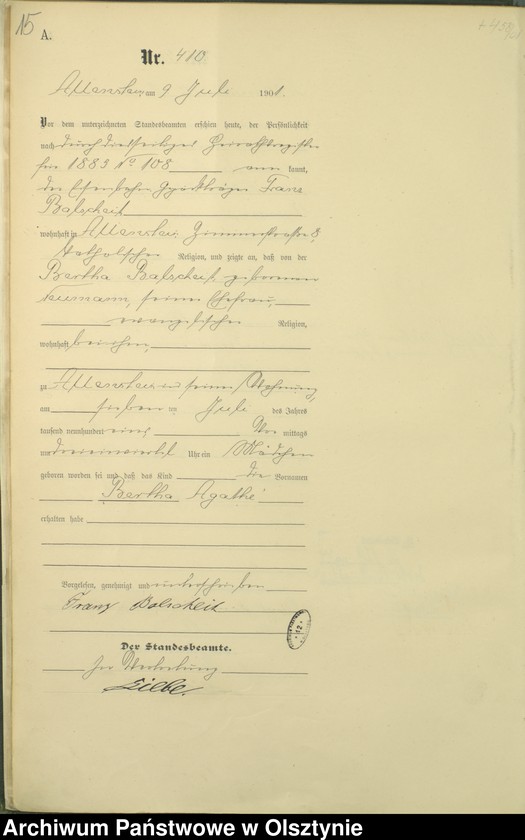 15
A.
Nr. 410
Allenstein am 9 Juli 1901.
Vor dem unterzeichneten Standesbeamten erschien heute, der Persönlichkeit
nach durch diesseitiges Heirathsregister
für 1883 No 108 kannt,
der Eisenbahn Franz
Balscheit
wohnhaft in Allenstein Zimmerstraße 8,
katholischer Religion, und zeigte an, daß von der
Bertha Balscheit geborenen
Neumann, seiner Ehefrau,
evangelischer Religion,
wohnhaft bei ihm,
zu Allenstein in seiner Wohnung
am sieben ten Juli des Jahres
tausend neunhundert eins Vor mittags
um drei einviertel Uhr ein Mädchen
geboren worden sei und daß das Kind die Vornamen
Bertha Agathe
erhalten habe
Vorgelesen, genehmigt und unterschrieben
Franz Balscheit
Der Standesbeamte.
In Vertretung
Archiwum Państwowe w Olsztynie